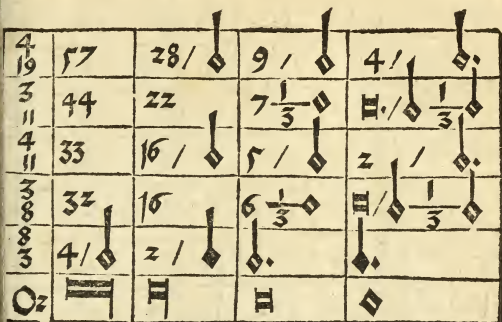 4/19 57 28/ 9 / 4 /
3/11 44 22 7 1/3 / 1/3
4/11 33 16 / 5 / 2 /
3/8 32 16 6 1/3 / 1/3
8/3 4/ 2 /
O2